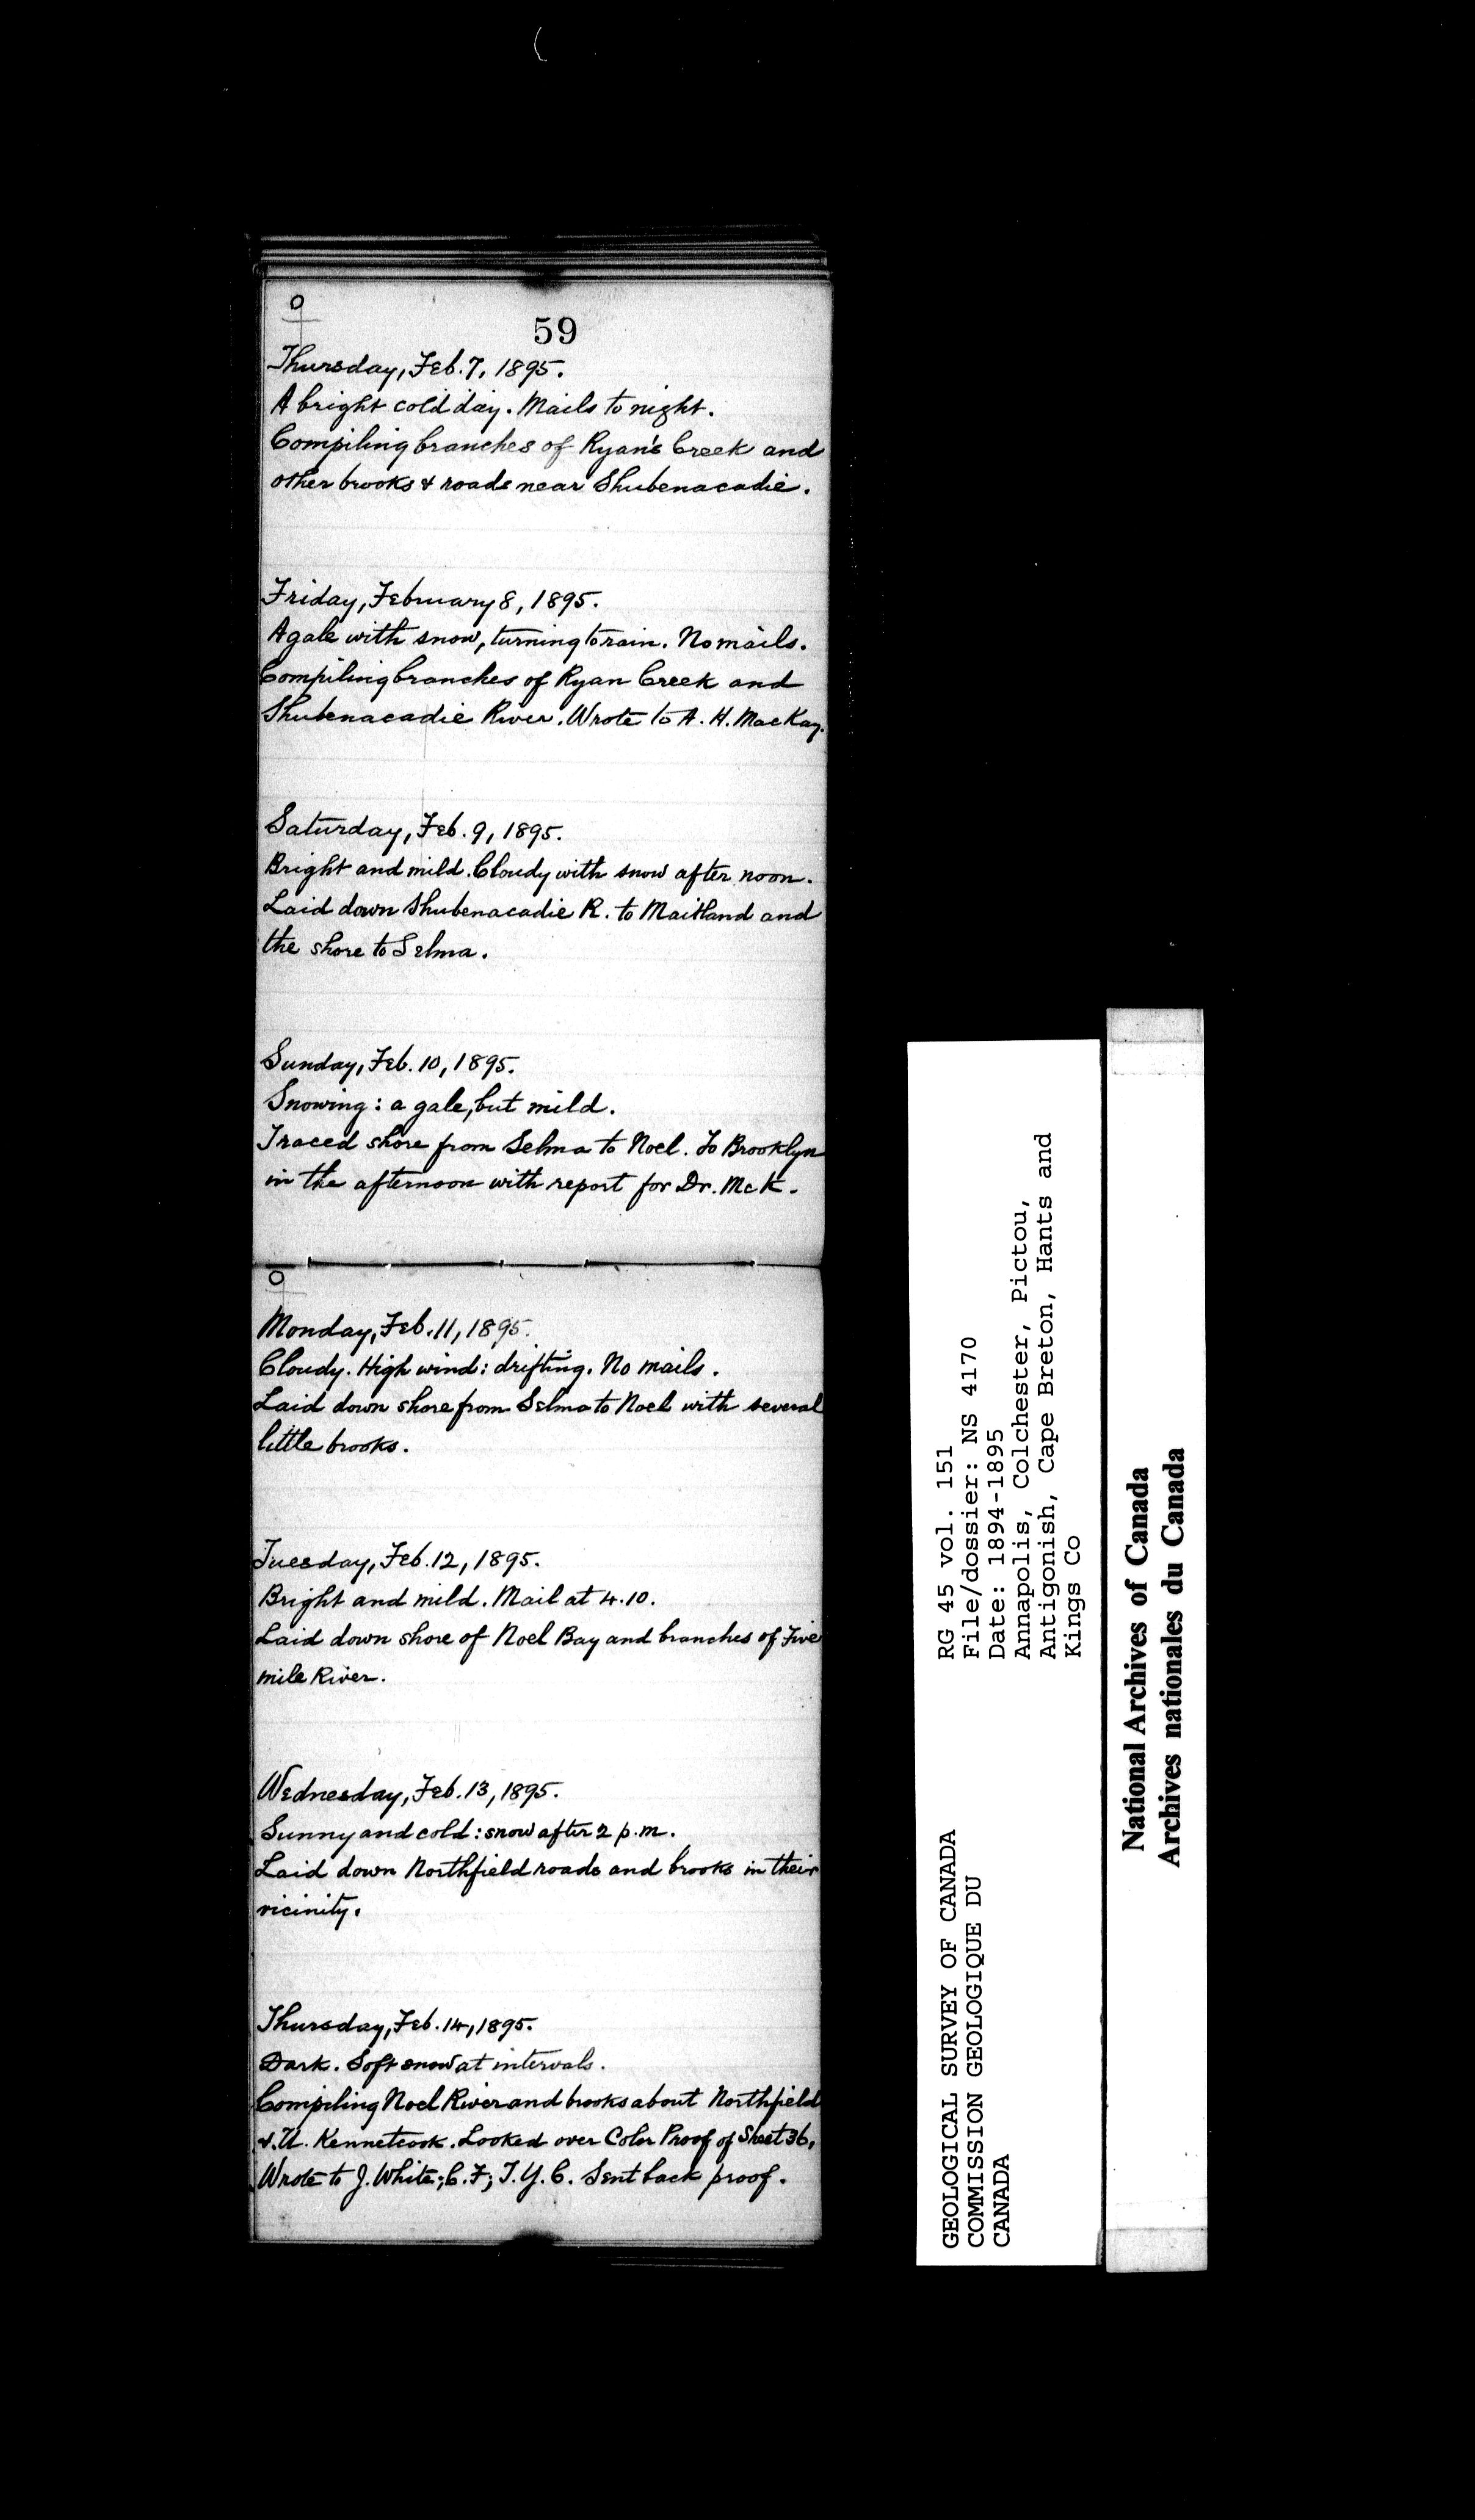 59
Thursday, Feb. 7, 1895.
A bright cold day. Mails to night.
Compiling branches of Ryan's Creek and
other brooks & roads near Shubenacadie.
Friday, February 8, 1895.
A gale with snow, turning to rain. No mails.
Compiling branches of Ryan Creek and
Shubenacadie River. Wrote to A. H. MacKay.
Saturday, Feb. 9, 1895.
Bright and mild. Cloudy with snow after noon.
Laid down Shubenacadie R. to Maitland and
the shore to Selma.
Sunday, Feb. 10, 1895.
Snowing: a gale, but mild.
Traced shore from Selma to Noel. To Brooklyn
in the afternoon with report for Dr. McK.
Monday, Feb. 11, 1895.
Cloudy. High wind: drifting. No mails.
Laid down shore from Selma to Noel with several
little brooks.
Tuesday, Feb. 12, 1895.
Bright and mild. Mail at 4.10.
Laid down shore of Noel Bay and branches of Five
mile River.
Wednesday, Feb. 13, 1895.
Sunny and cold: snow after 2 p.m.
Laid down Northfield roads and brooks in their
vicinity.
Thursday, Feb. 14, 1895.
Dark. Soft snow at intervals.
Compiling Noel River and brooks about Northfield
& U. Kennetcook. Looked over Color Proof of Sheet 36.
Wrote to J. White; C. F; T. Y. C. Sent back proof.
GEOLOGICAL SURVEY OF CANADA
COMMISSION GEOLOGIQUE DU
CANADA
RG 45 vol. 151
File/dossier: NS 4170
Date: 1894-1895
Annapolis, Colchester, Pictou,
Antigonish, Cape Breton, Hants and
Kings Co
National Archives of Canada
Archives nationales du Canada